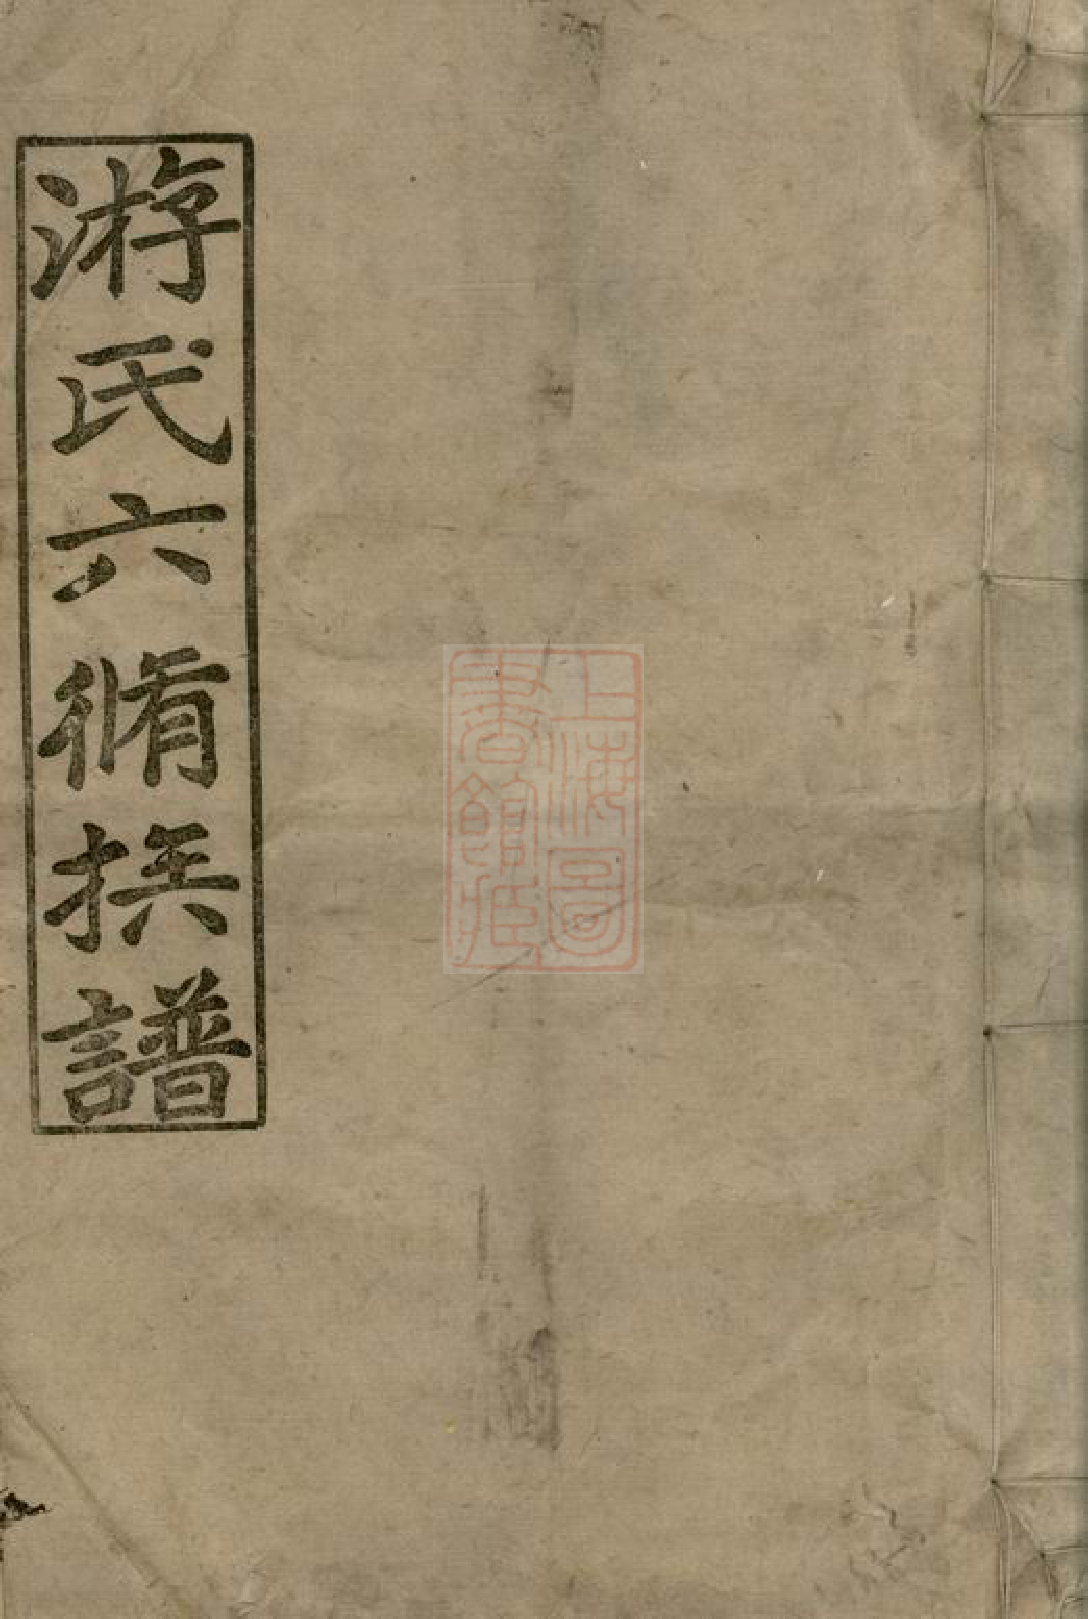 游氏六脩族譜
上海圖
書館藏